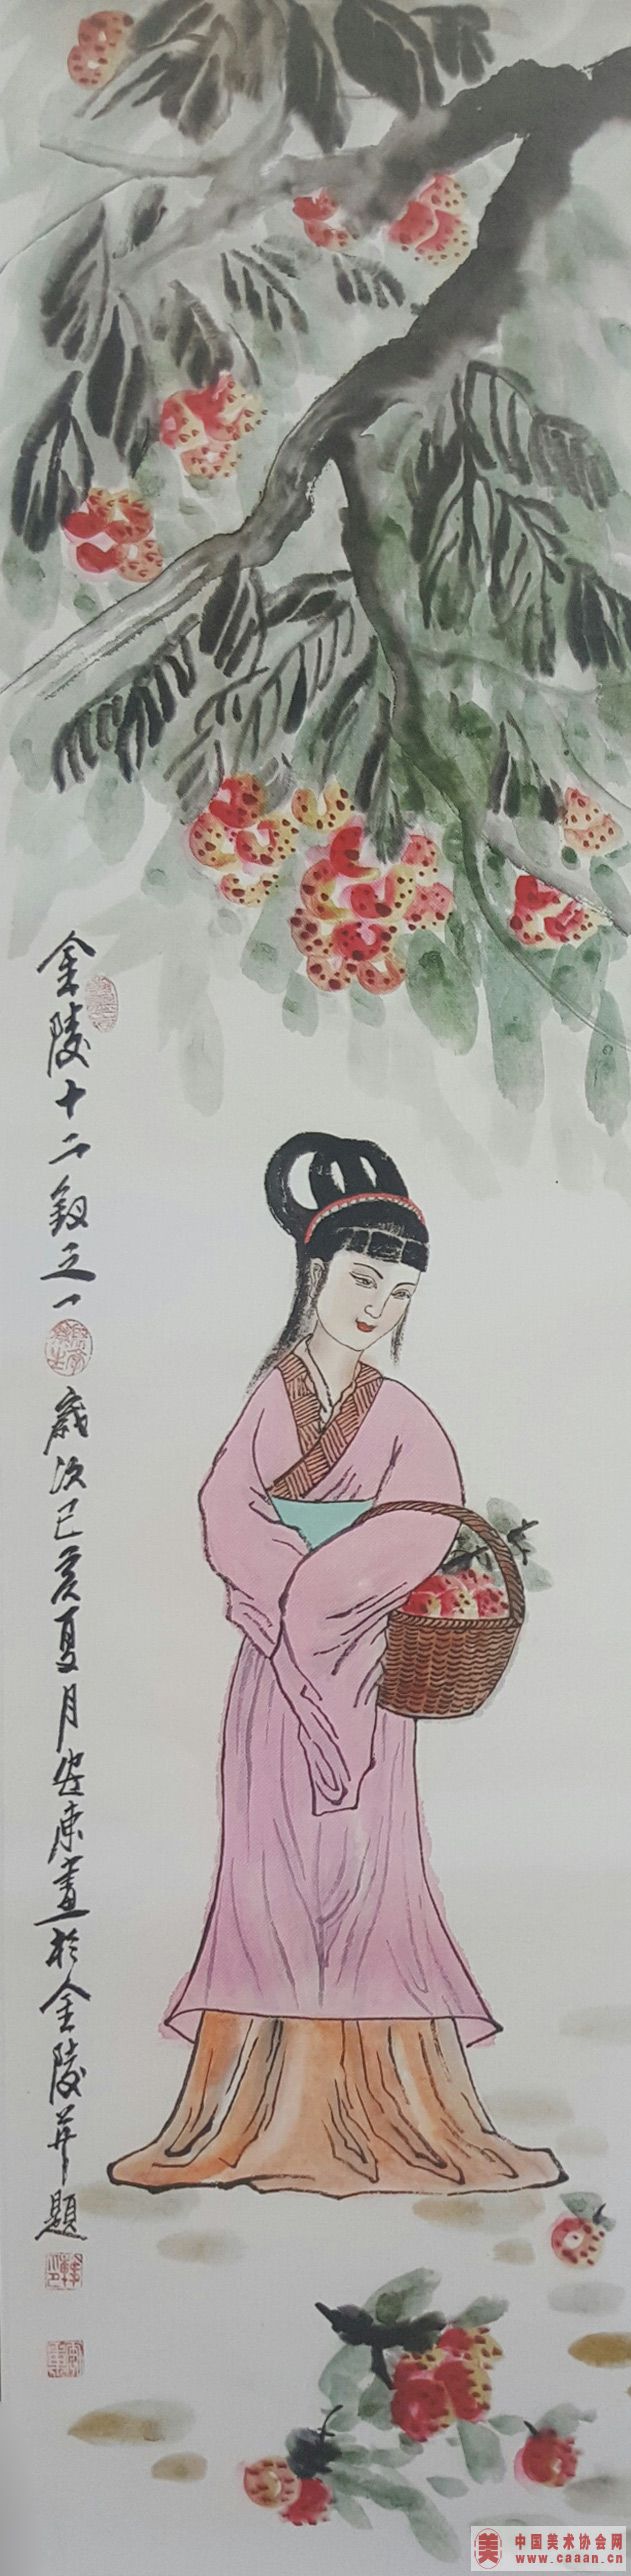 金陵十二釵之一
歲次己亥夏月安東畫於金陵并題
美
中国美术协会网
www.caaan.cn